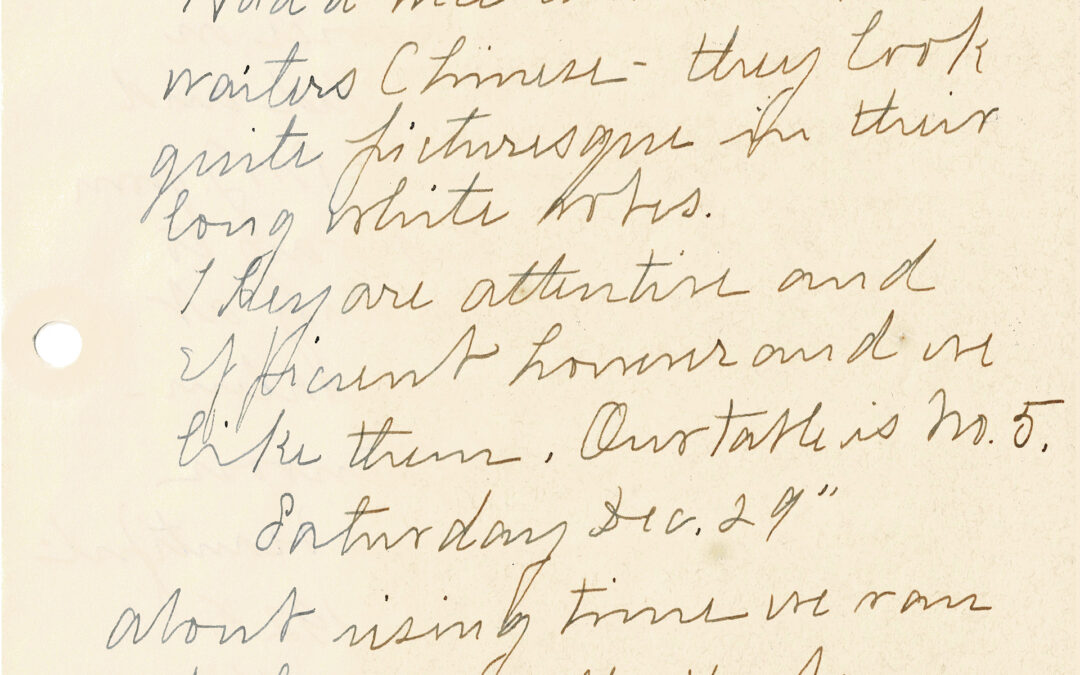 Had a nice
waiters Chinese - they look
quite picturesque in their
long white robes.
They are attentive and
Efficient however and we
like them. Our table is No. 5.
Saturday Dec. 29"
about rising time we ran